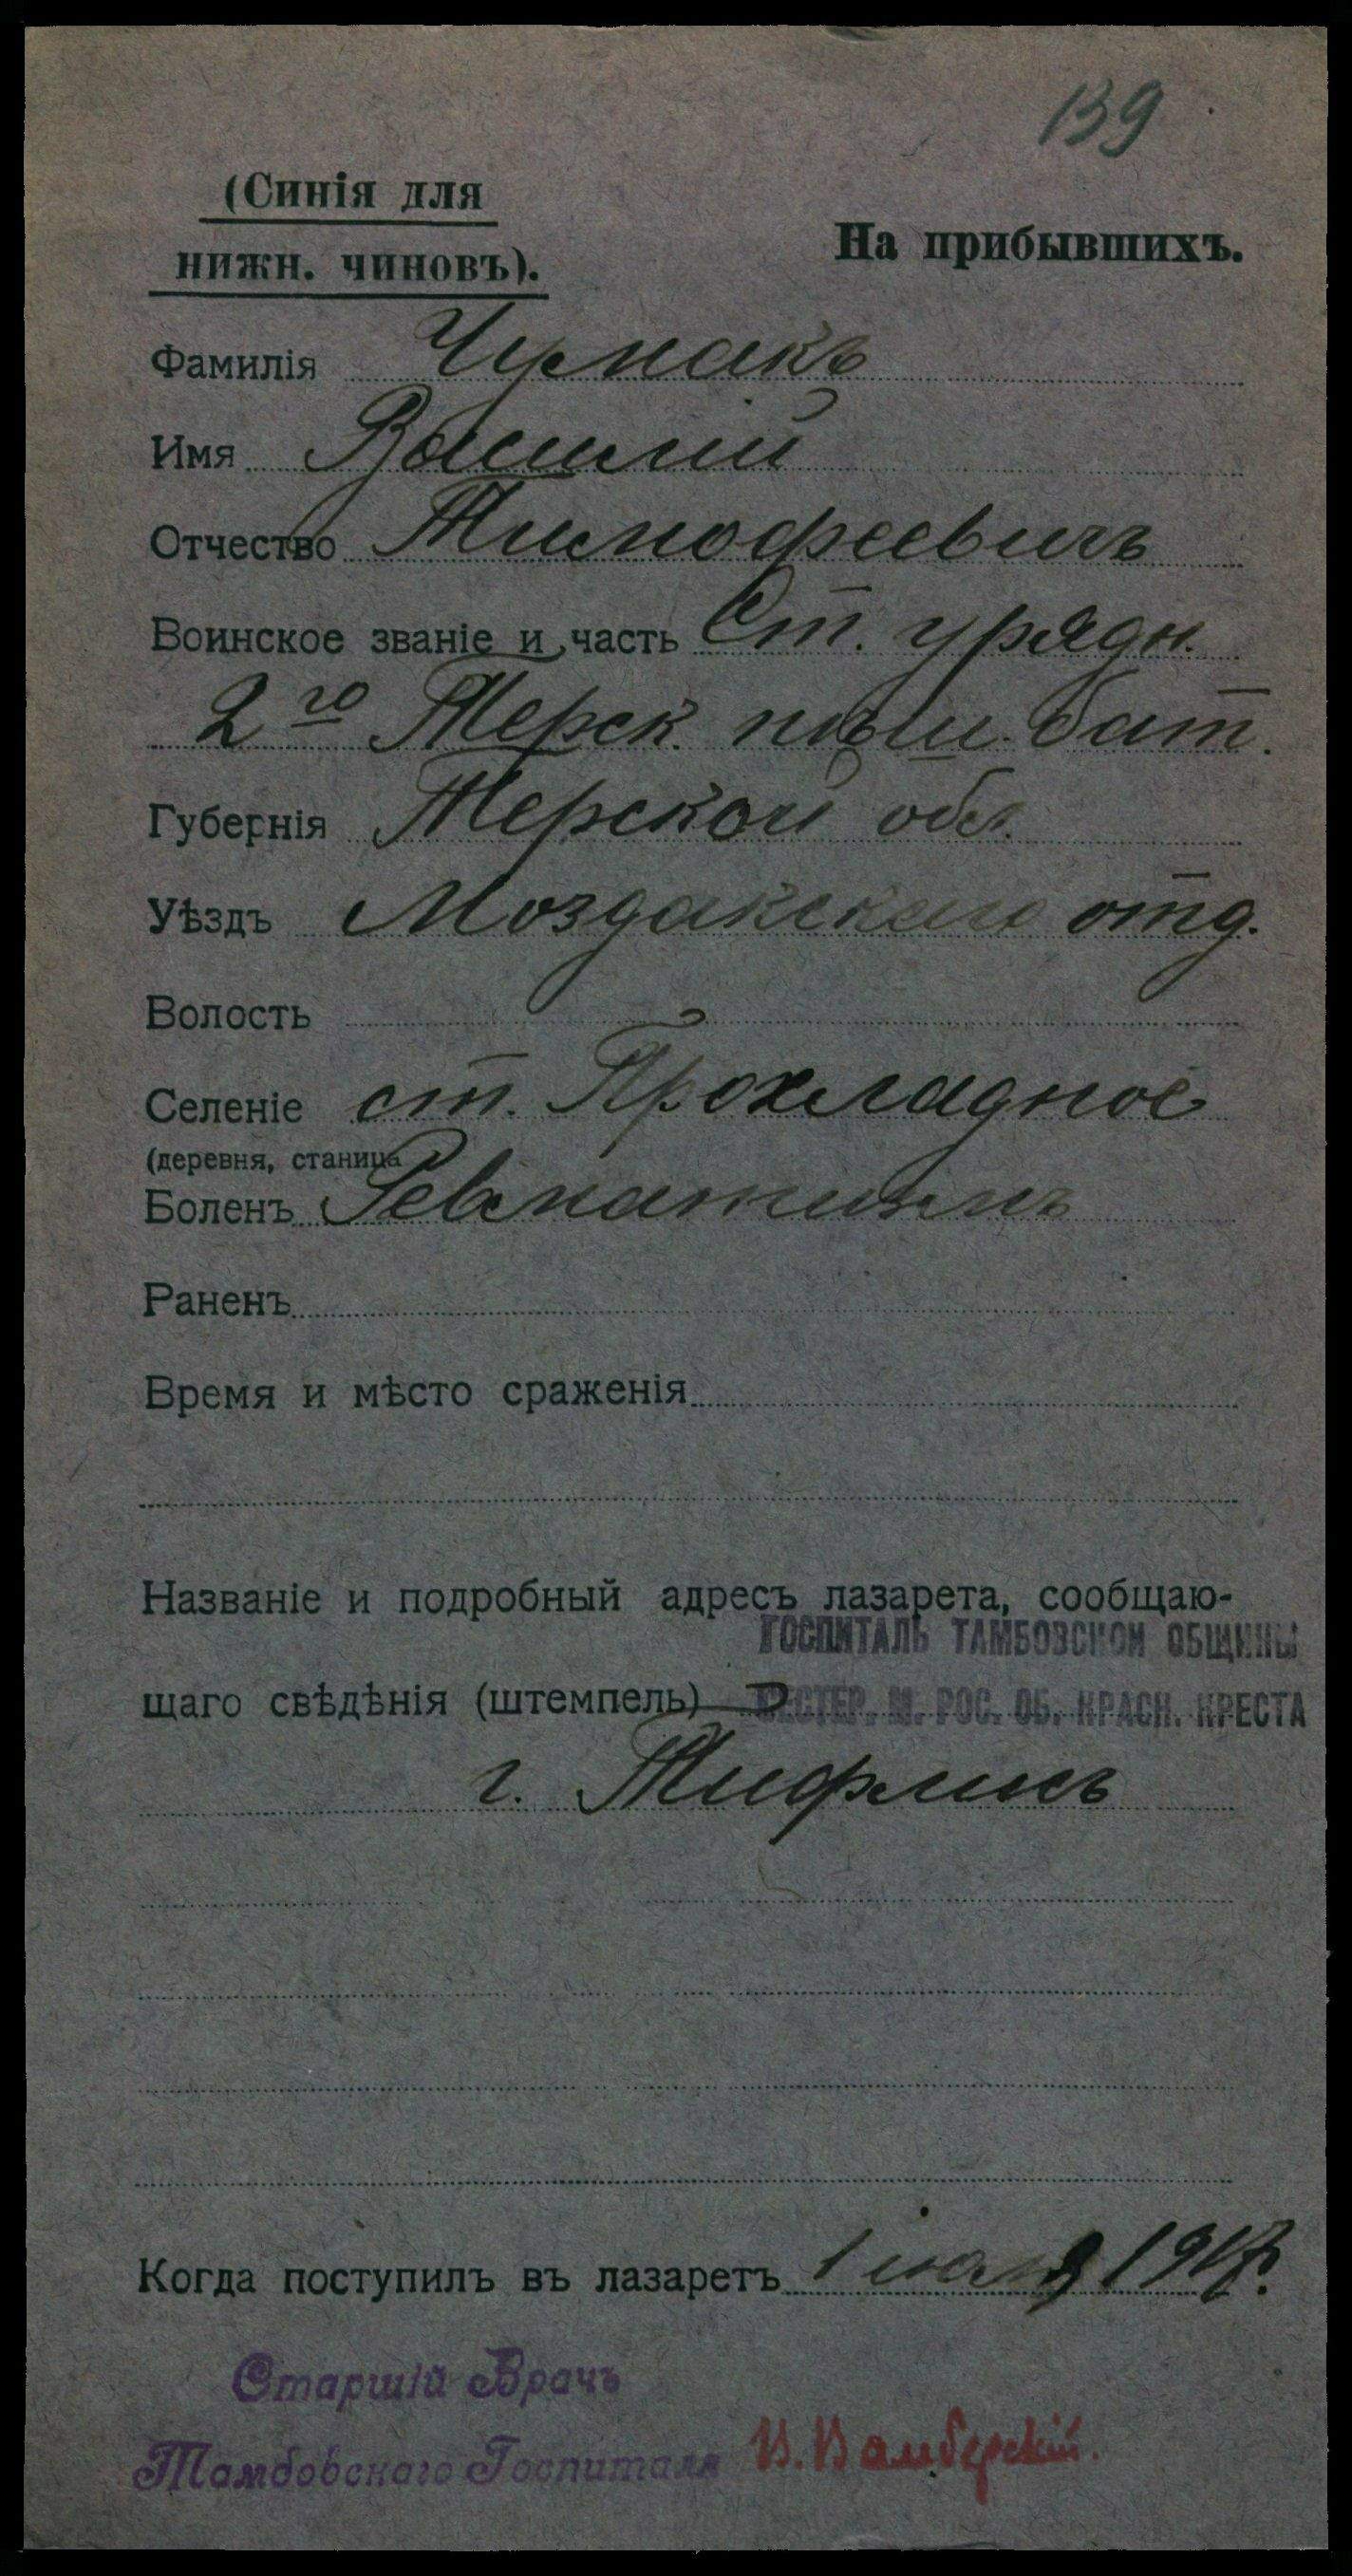 139
(Синія для
нижн. чиновъ).
На прибывшихъ.
Фамилія Чумакъ
Имя Василій
Отчество Тимофеевичъ
Воинское званіе и часть Ст. урядн.
2го Терск. пѣш. бат.
Губернія Терской обл.
Уѣздъ Моздакскаго отд.
Волость
Селеніе ст. Прохладное
(деревня, станица
Боленъ Ревматизмъ
Раненъ
Время и мѣсто сраженія
Названіе и подробный адресъ лазарета, сообщаю-
ГОСПИТАЛЬ ТАМБОВСКОЙ ОБЩИНЫ
щаго свѣдѣнія (штемпель) СЕСТЕР. М. РОС. ОБ. КРАСН. КРЕСТА
г. Тифлисъ
Когда поступилъ въ лазаретъ 1 1917г.
Старшій Врачъ
Тамбовскаго Госпиталя